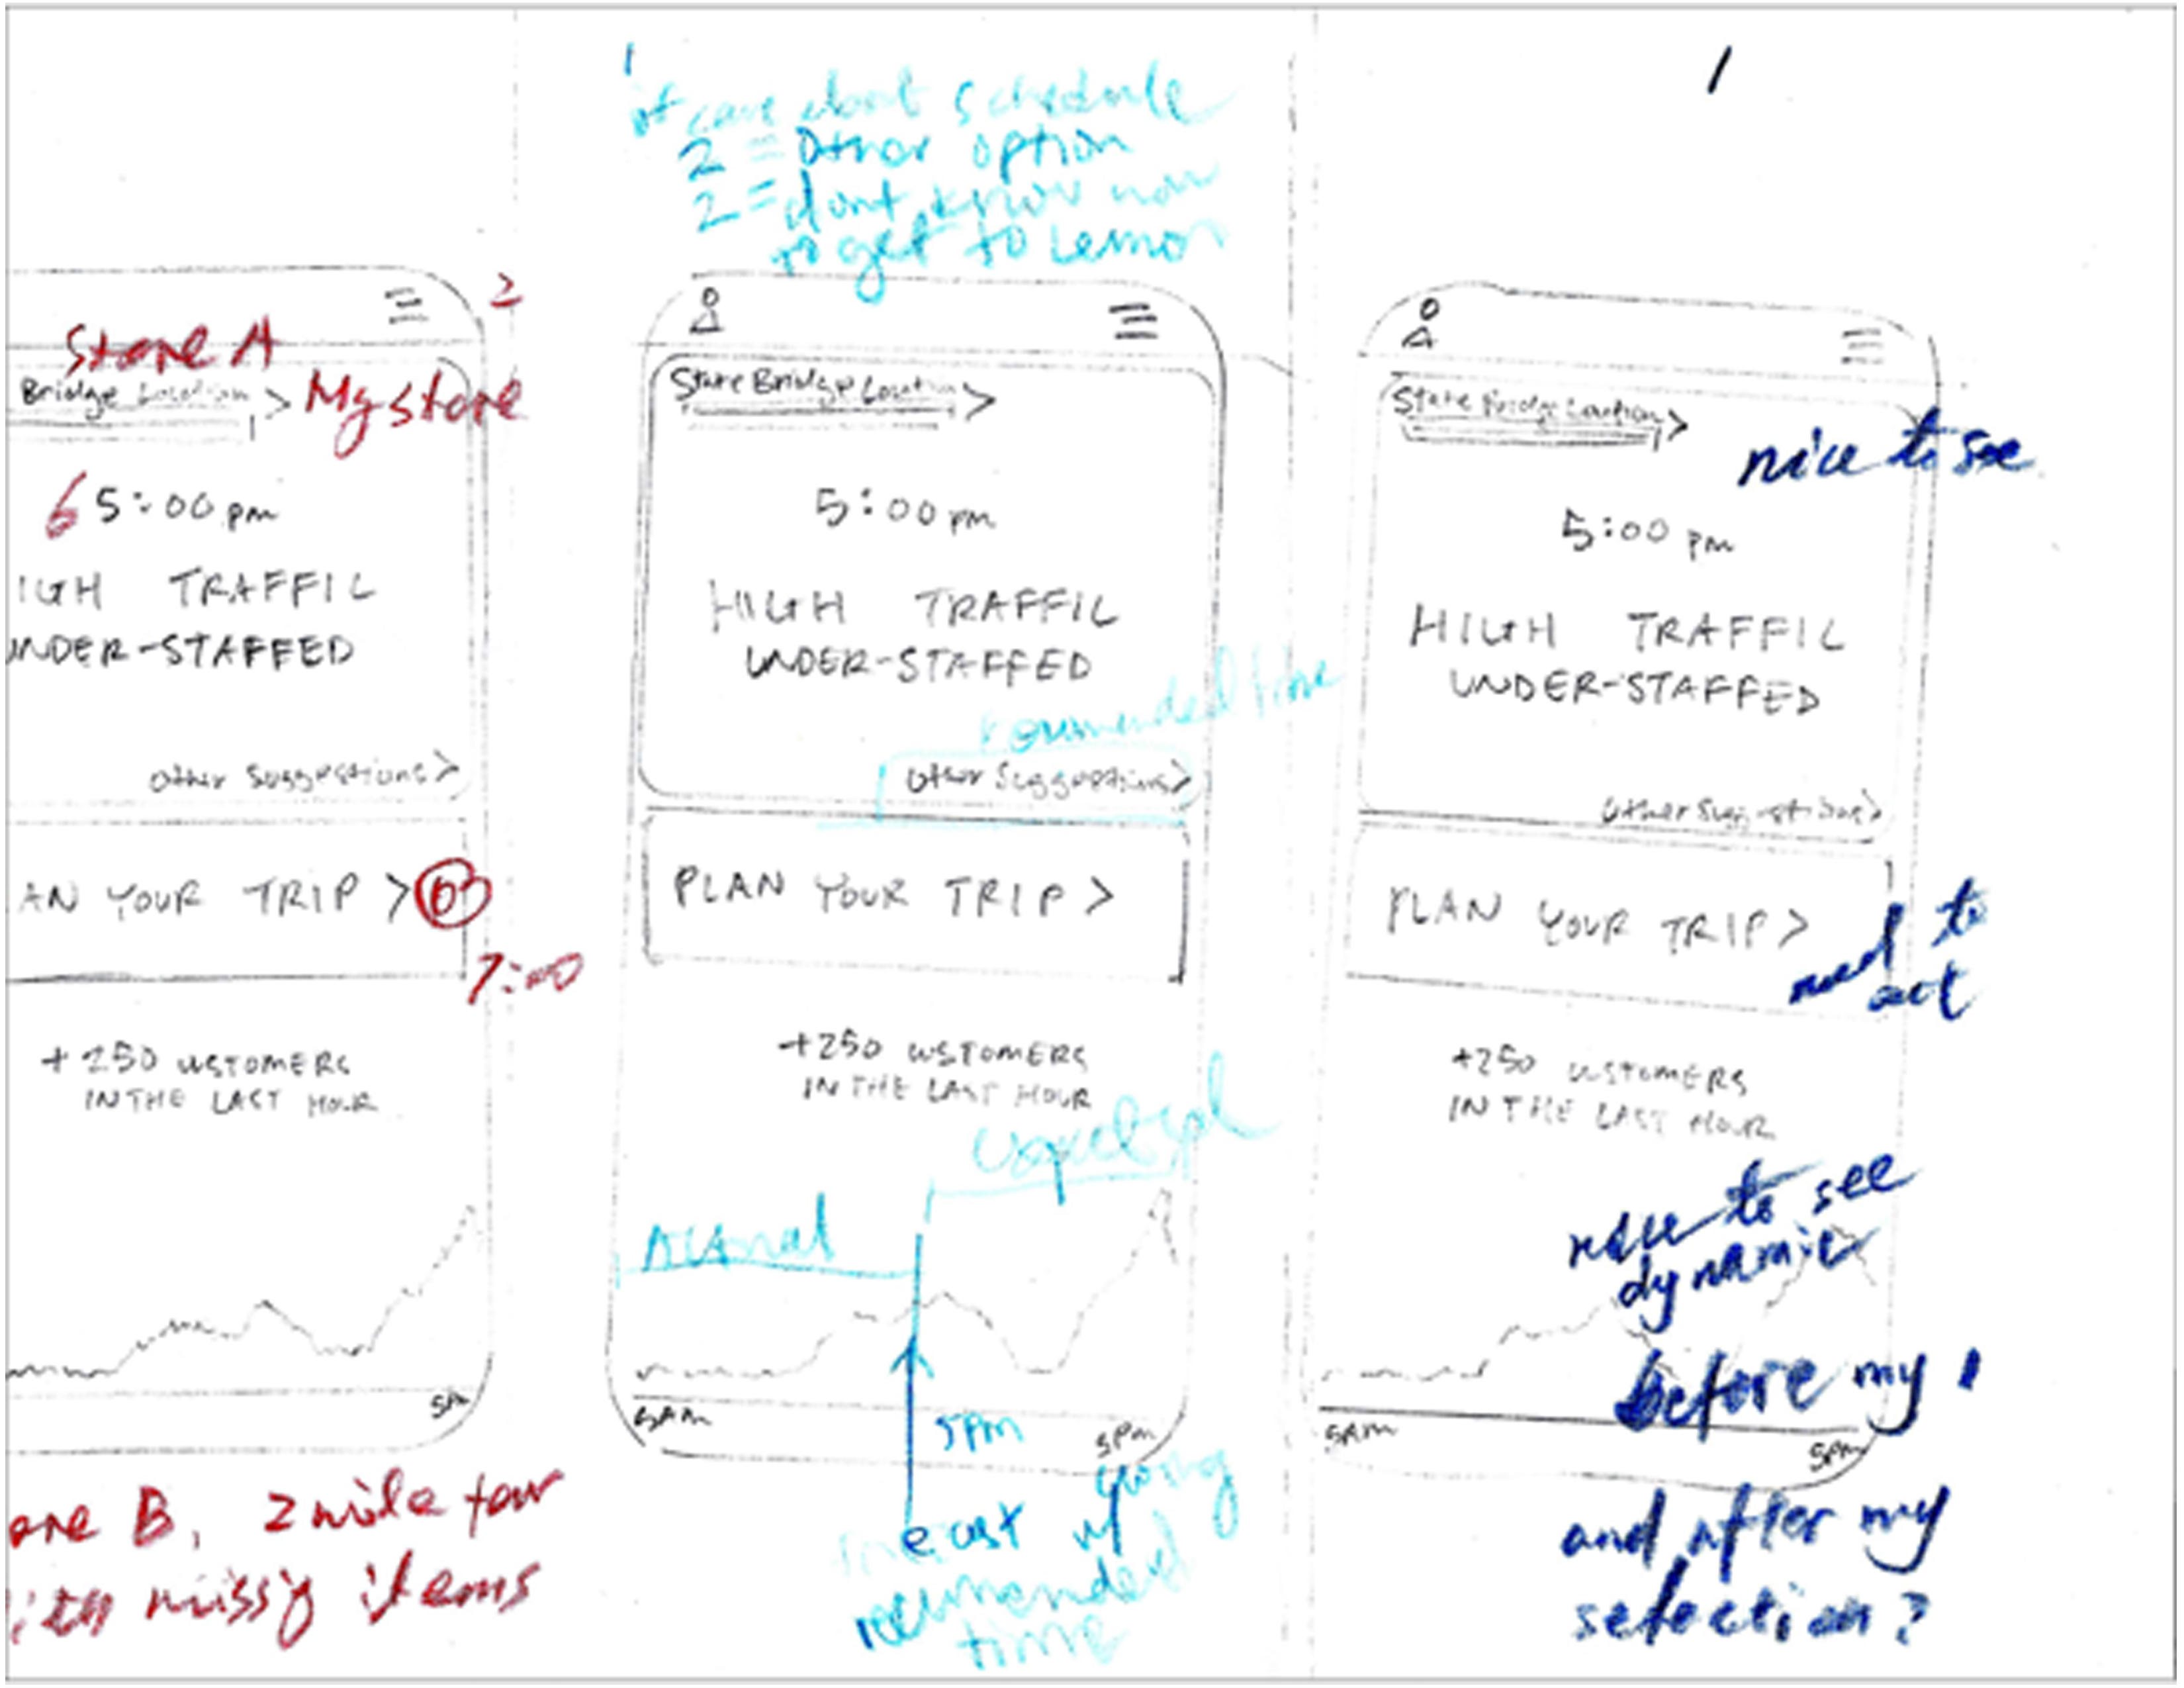 2
Store A
Bridge Location > My store
6 5:00 pm
IGH TRAFFIC
UNDER-STAFFED
Other Suggestions >
AN YOUR TRIP >
7:00
+250 CUSTOMERS
IN THE LAST HOUR
ore B, 2 mile far
ith missig items
1
care about schedule
2 = Other option
2 = dont know how
to get to Lemon
State Bridge Location >
5:00 pm
HIGH TRAFFIC
UNDER-STAFFED
recommended time
Other Suggestions >
PLAN YOUR TRIP >
+250 CUSTOMERS
IN THE LAST HOUR
Actual
5AM
5Pm
5Pm
going
recommended
time
1
State Bridge Location >
nice to see
5:00 pm
HIGH TRAFFIC
UNDER-STAFFED
Other Suggestions >
PLAN YOUR TRIP >
need to
act
+250 CUSTOMERS
IN THE LAST HOUR
nice to see
dynamic
before my
5AM
5Pm
and after my
selection?